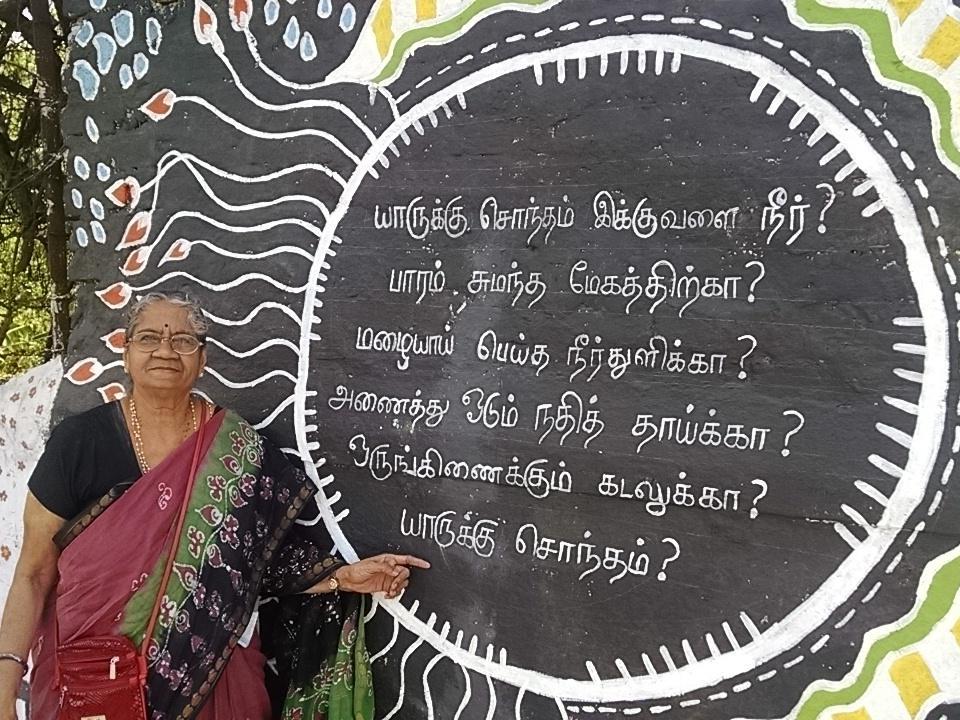 யாருக்கு சொந்தம் இக்குவளை நீர்?
பாரம் சுமந்த மேகத்திற்கா?
மழையாய் பெய்த நீர்துளிக்கா?
அணைத்து ஓடும் நதித் தாய்க்கா?
ஒருங்கிணைக்கும் கடலுக்கா?
யாருக்கு சொந்தம்?